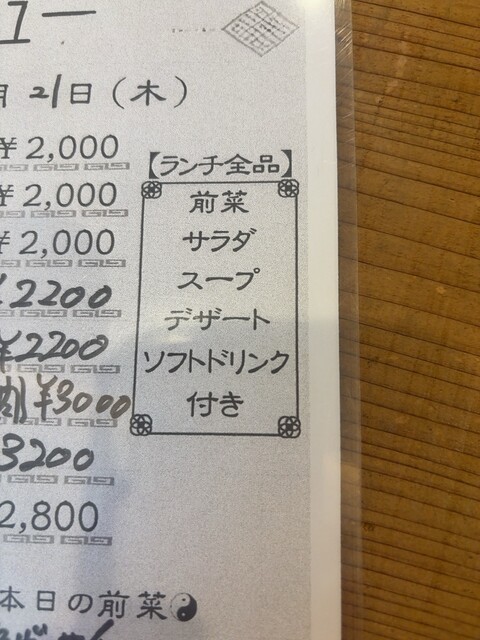 ュー
月 21日（木）
¥ 2,000
¥ 2,000
¥ 2,000
¥2200
¥2200
¥3000
3200
2,800
【ランチ全品】
前菜
サラダ
スープ
デザート
ソフトドリンク
付き
本日の前菜